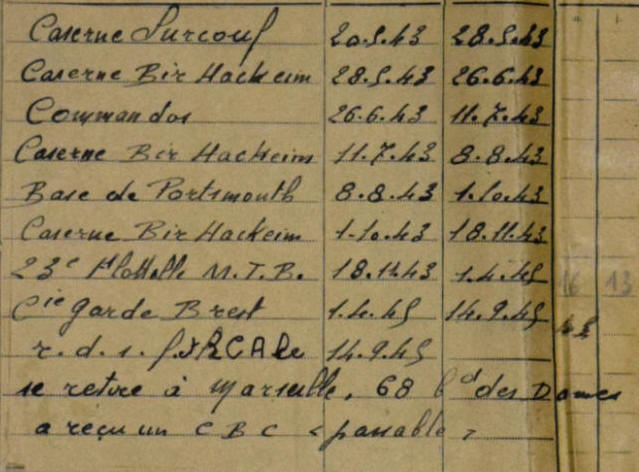 Caserne Surcouf 20.5.43 28.5.43
Caserne Bir Hackeim 28.5.43 26.6.43
Commandos 26.6.43 11.7.43
Caserne Bir Hackeim 11.7.43 8.8.43
Base de Portsmouth 8.8.43 1.10.43
Caserne Bir Hackeim 1.10.43 18.11.43
23e flottille M.T.B. 18.11.43 1.4.45 16 13
Cie Garde Brest 1.4.45 14.9.45
r.d.s. 14.9.45
se retire à Marseille, 68 bd des Dames
a reçu un CBC < passable >